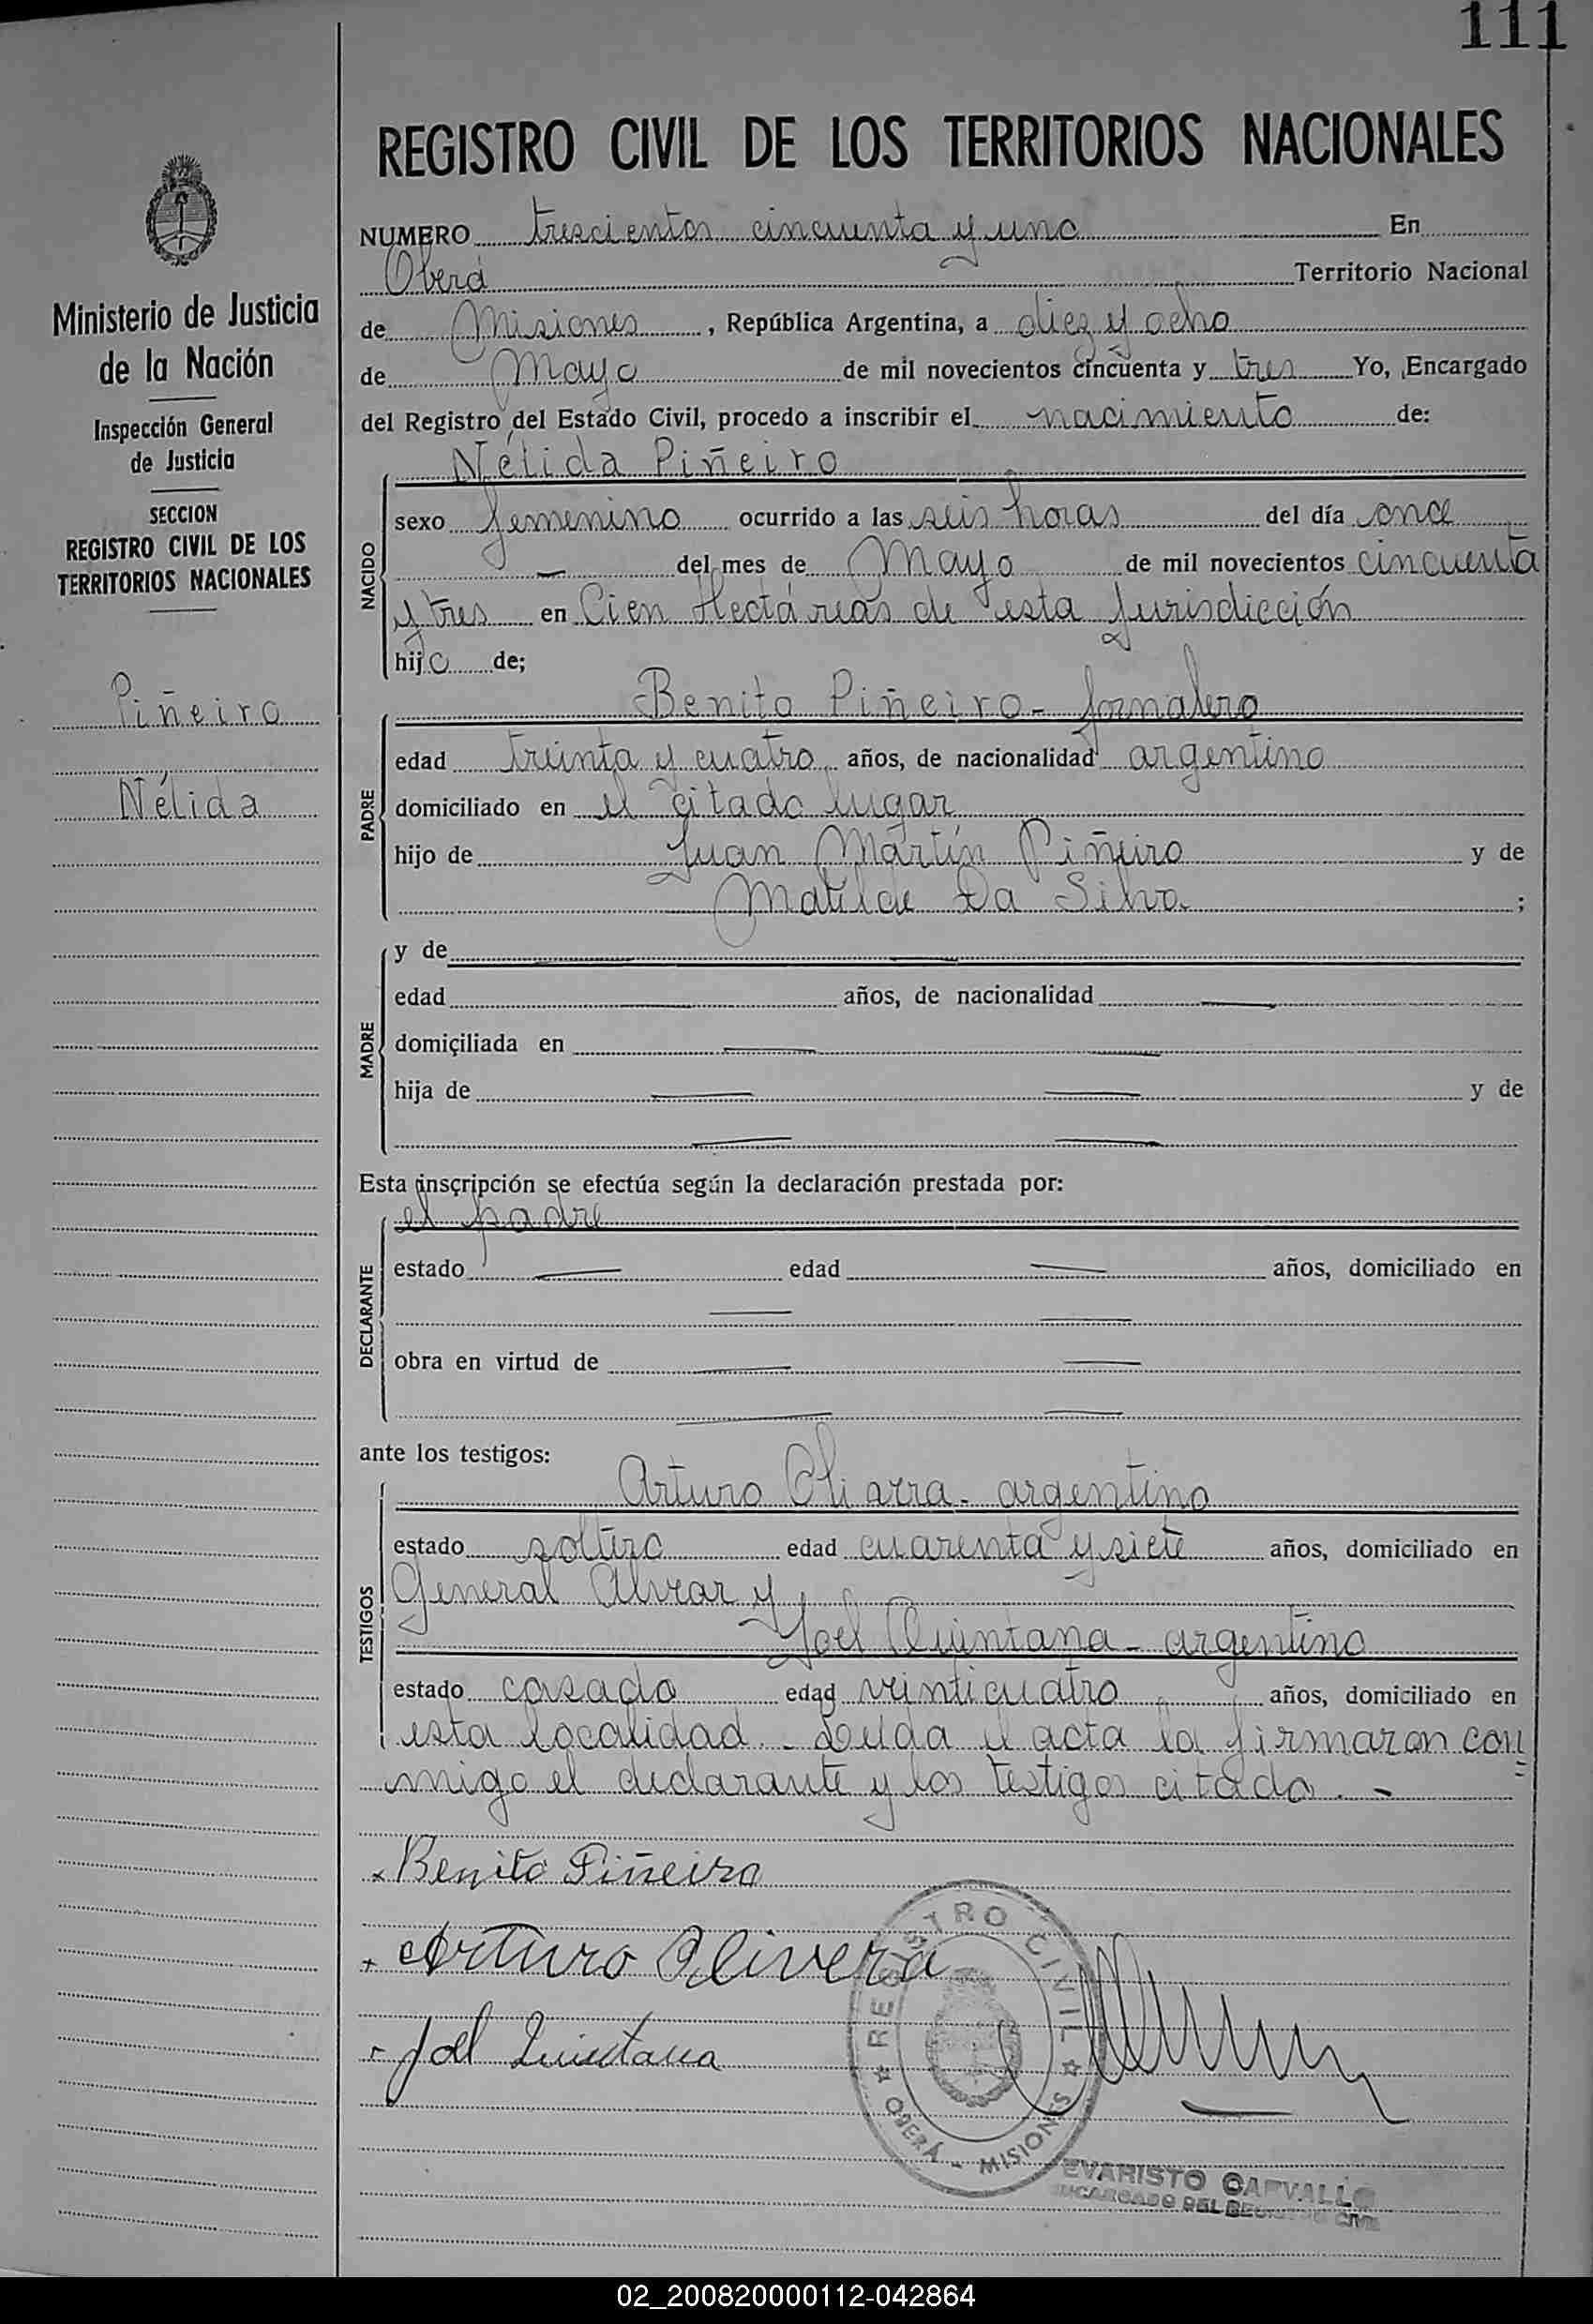 111
REGISTRO CIVIL DE LOS TERRITORIOS NACIONALES
Ministerio de Justicia
de la Nación
Inspección General
de Justicia
SECCION
REGISTRO CIVIL DE LOS
TERRITORIOS NACIONALES
Piñeiro
Nélida
NUMERO trescientos cincuenta y uno En
Oberá Territorio Nacional
de Misiones, República Argentina, a diez y ocho
de Mayo de mil novecientos cincuenta y tres Yo, Encargado
del Registro del Estado Civil, procedo a inscribir el nacimiento de:
NACIDO
Nélida Piñeiro
sexo femenino ocurrido a las seis horas del día once
— del mes de Mayo de mil novecientos cincuenta
y tres en Cien Hectáreas de esta jurisdicción
hijo de;
PADRE
Benito Piñeiro - jornalero
edad treinta y cuatro años, de nacionalidad argentino
domiciliado en el citado lugar
hijo de Juan Martín Piñeiro y de
Matilde Da Silva ;
MADRE
y de — —
edad — años, de nacionalidad —
domiciliada en — —
hija de — — y de
— —
Esta inscripción se efectúa según la declaración prestada por:
DECLARANTE
el padre
estado — edad — años, domiciliado en
— —
obra en virtud de — —
— —
ante los testigos:
TESTIGOS
Arturo - argentino
estado soltero edad cuarenta y siete años, domiciliado en
General Alvear y
Joel Quintana - argentino
estado casado edad veinticuatro años, domiciliado en
esta localidad. - Leída el acta la firmaron con=
migo el declarante y los testigos citado. -
x Benito Piñeiro
x Arturo Olivera
Joel Quintana
REGISTRO CIVIL
OBERÁ - MISIONES
EVARISTO CARVALLO
ENCARGADO DEL REGISTRO CIVIL
02_200820000112-042864